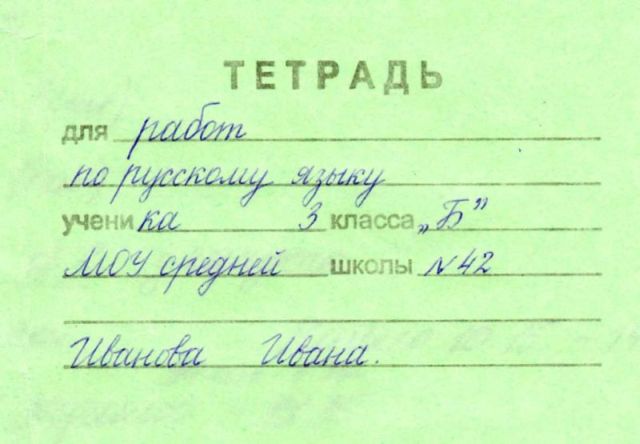 ТЕТРАДЬ
для работ
по русскому языку
ученика 3 класса „Б”
МОУ средней школы №42
Иванова Ивана.